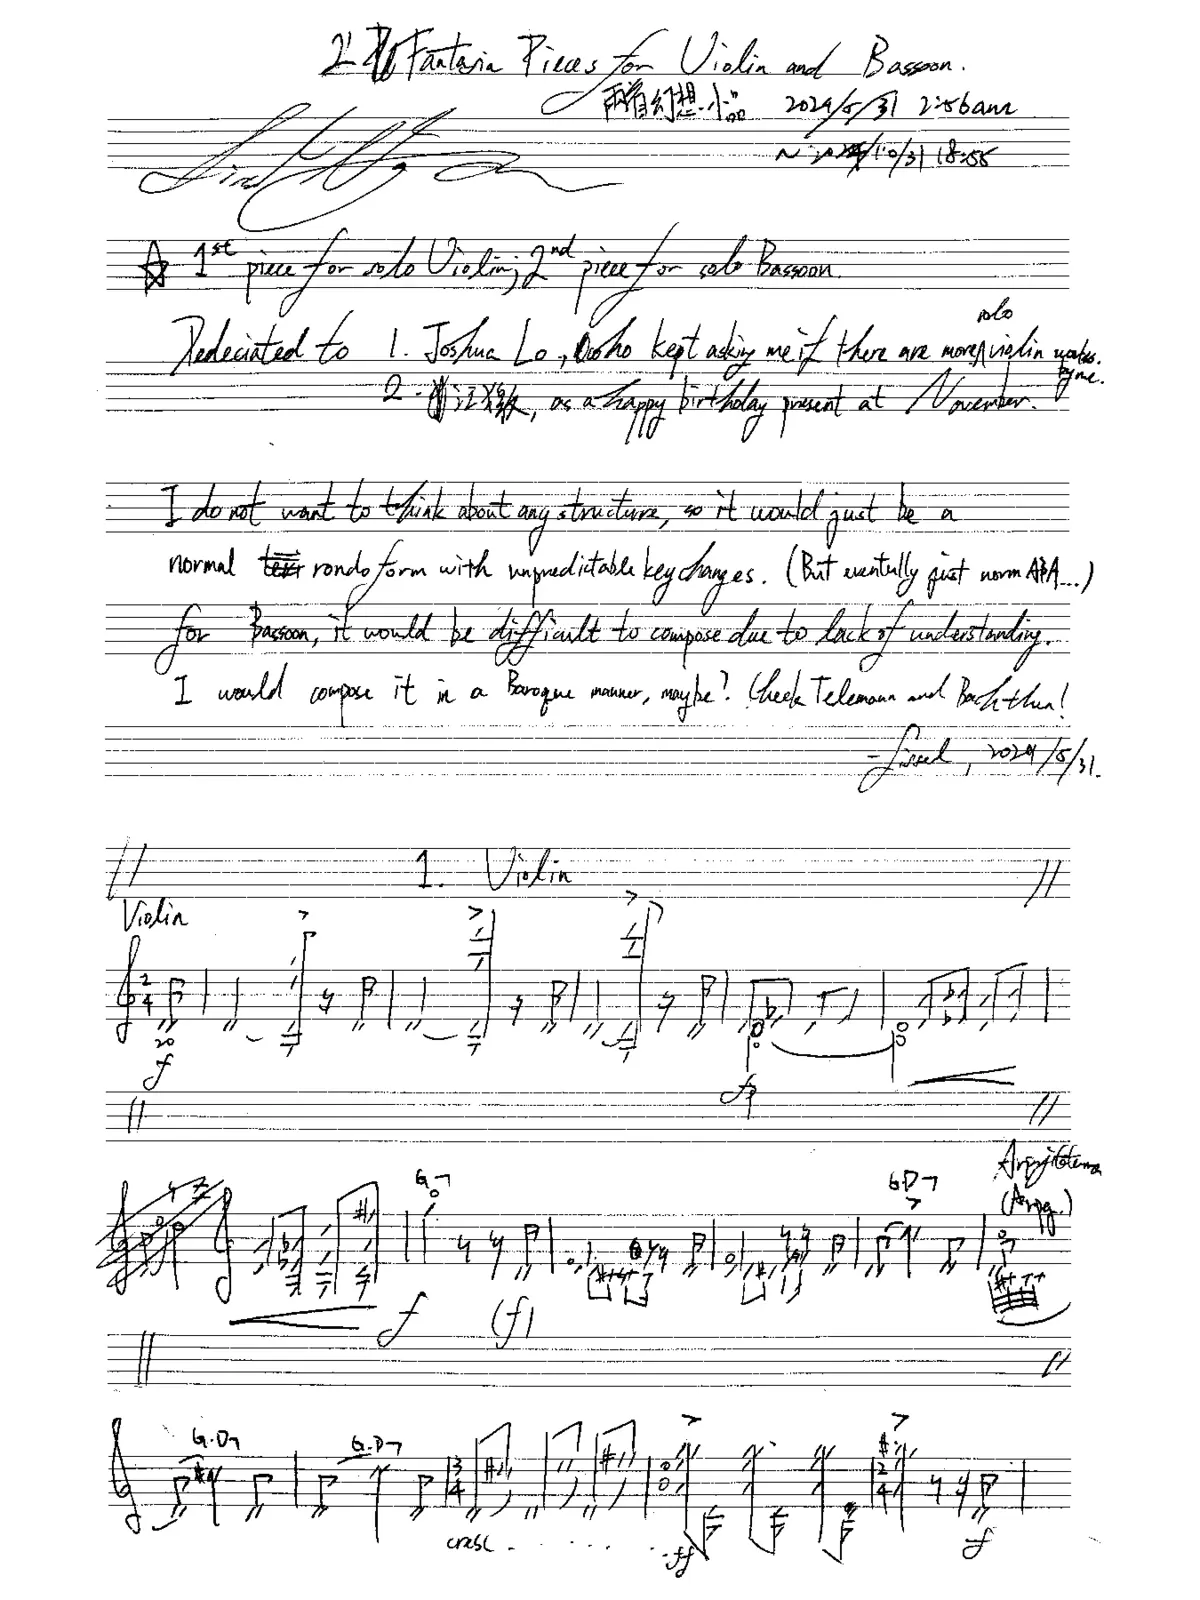 2 Fantasia Pieces for Violin and Bassoon.
兩首幻想小品 2024/5/31 2:56am
~ 2024/10/31 18:55
☆ 1st piece for solo Violin; 2nd piece for solo Bassoon.
Dedeciated to 1. Joshua Lo, who kept asking me if there are more solo violin works by me.
2. as a happy birthday present at November.
I do not want to think about any structure, so it would just be a
normal rondo form with unpredictable key changes. (But eventully just norm ABA...)
for Bassoon, it would be difficult to compose due to lack of understanding.
I would compose it in a Baroque manner, maybe? Check Telemann and Bach then!
2024/5/31.
1. Violin
Violin
2 4
20
f
fp
G
G.D
(Arpg.)
f (f)
G.D G.D
3 4
2 4
cresc . . . . . ff f